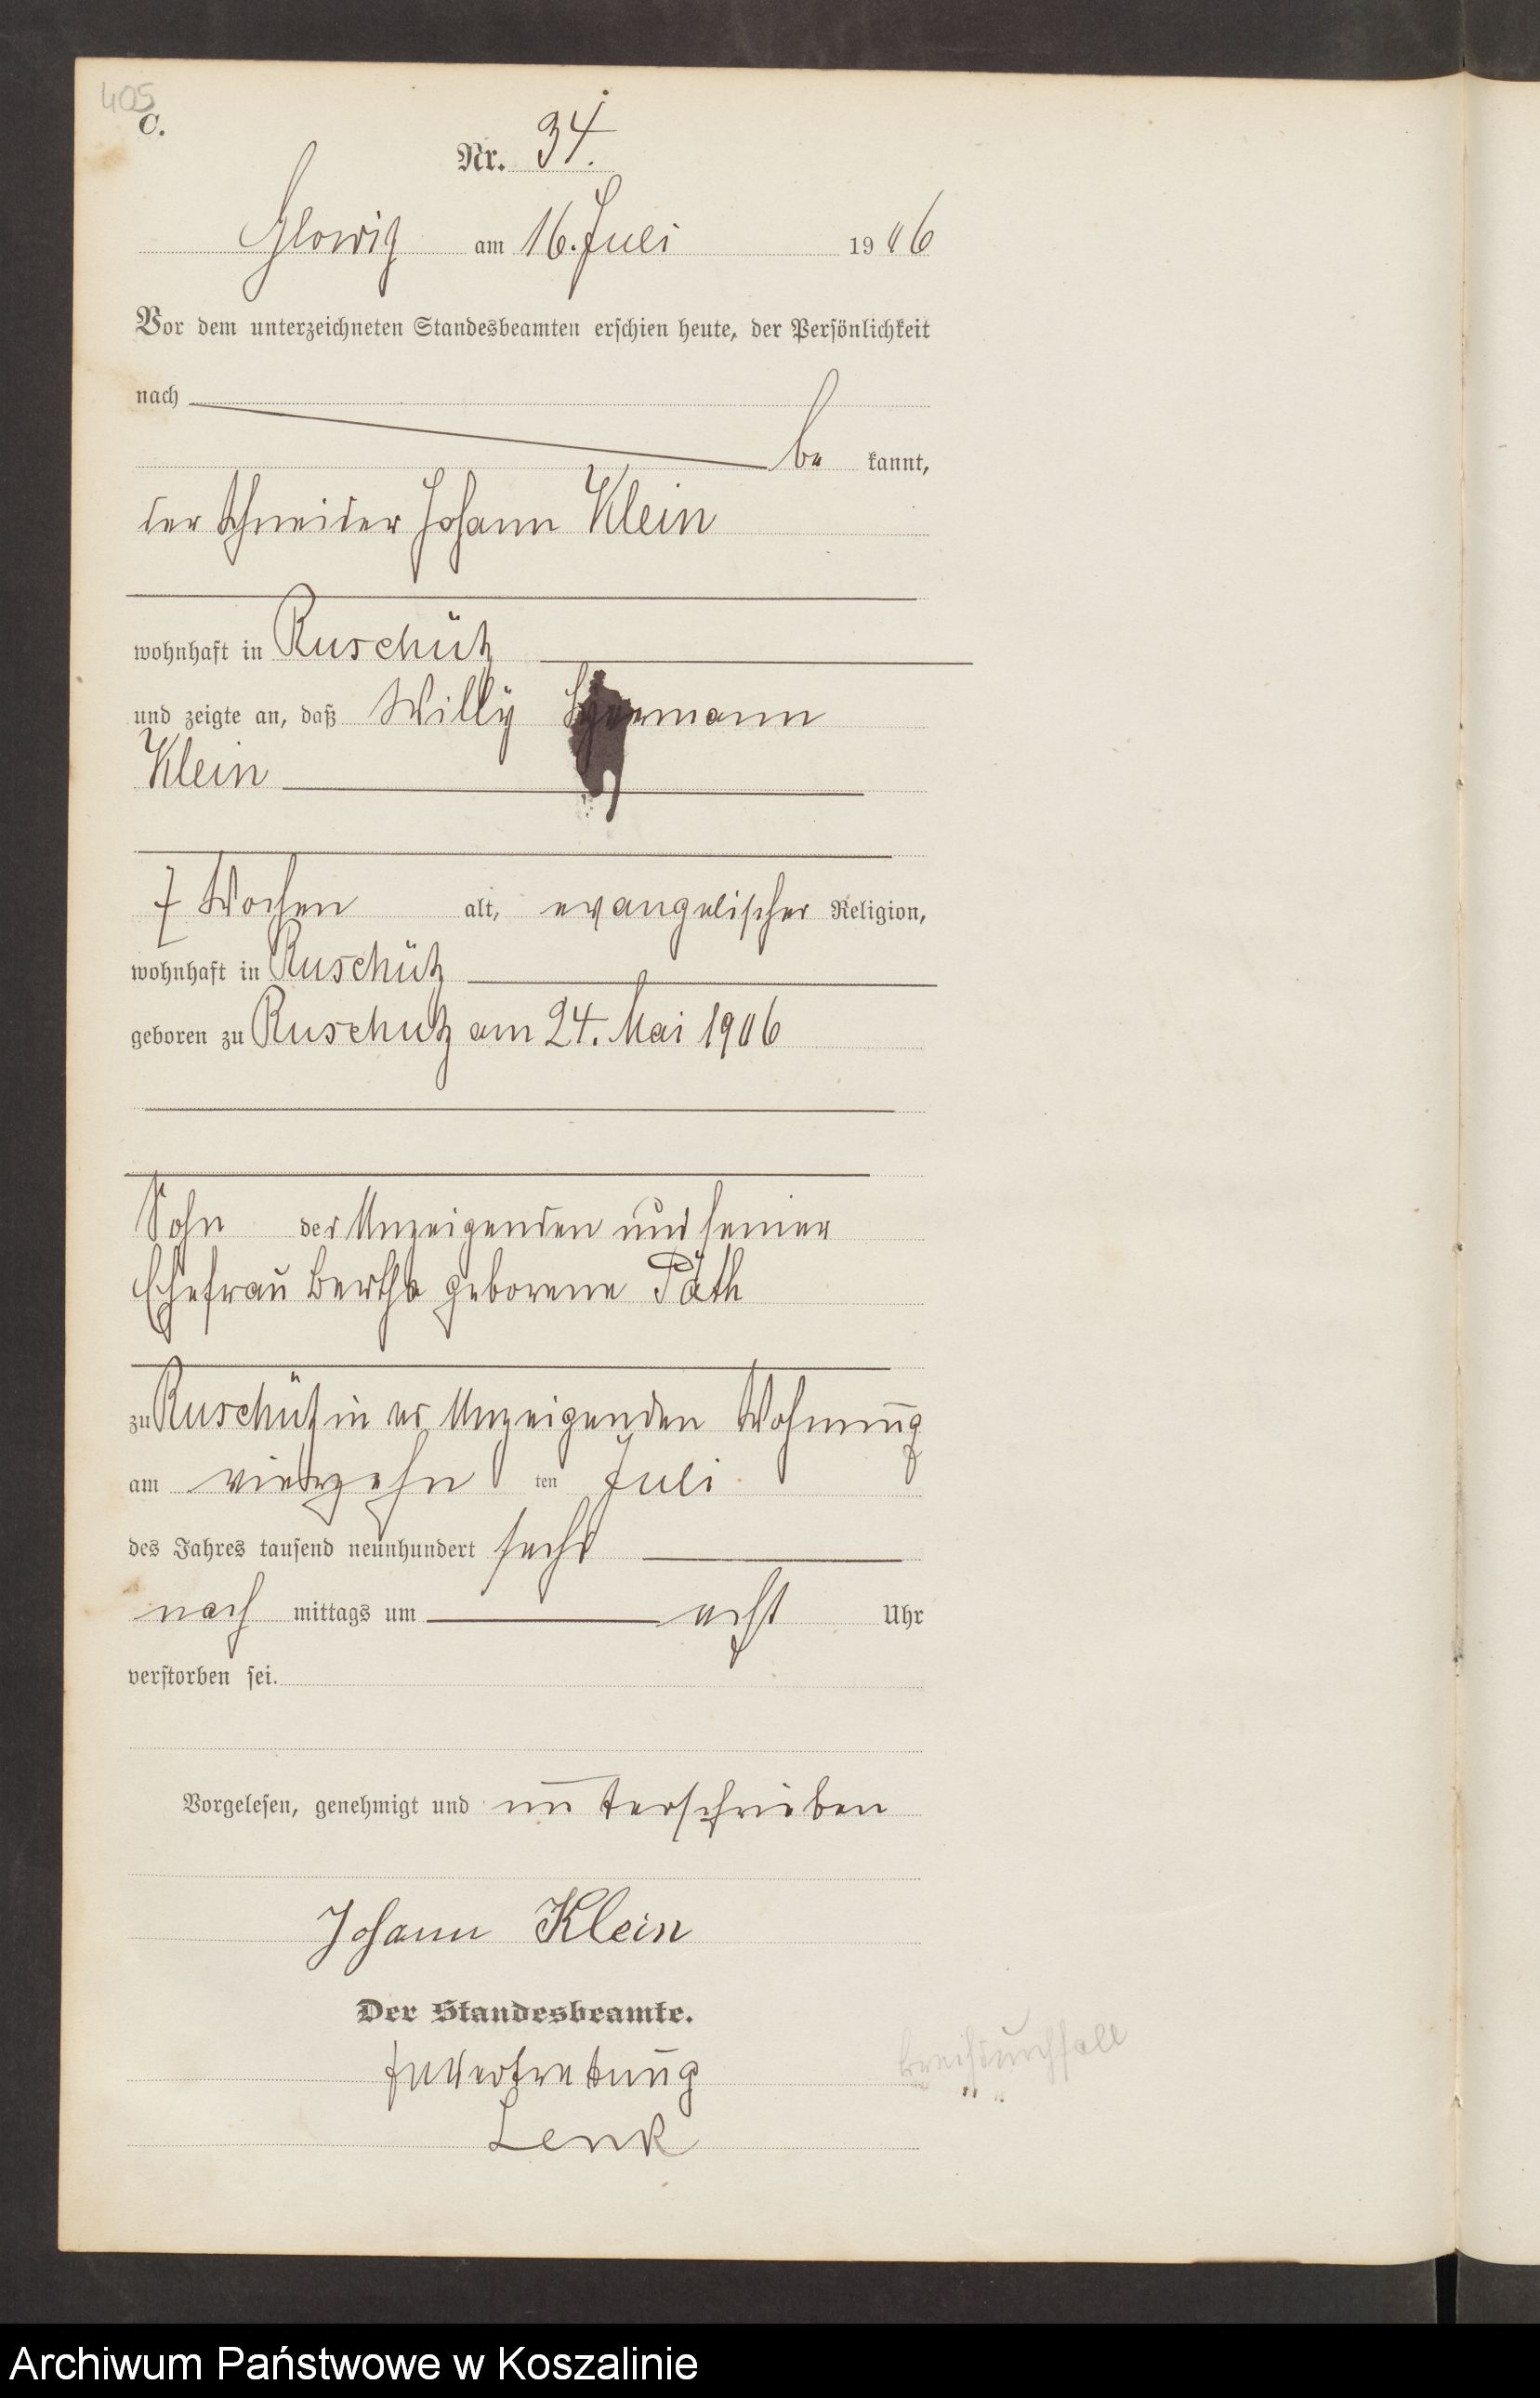 405
C.
Nr. 34.
Glowitz am 16. Juli 1906
Vor dem unterzeichneten Standesbeamten erschien heute, der Persönlichkeit
nach
be kannt,
der Schneider Johann Klein
wohnhaft in Ruschütz
und zeigte an, daß Willy Hermann
Klein
7 Wochen alt, evangelischer Religion,
wohnhaft in Ruschütz
geboren zu Ruschutz am 24. Mai 1906
Sohn des Anzeigenden und seiner
Ehefrau Bertha geborene Päth
zu Ruschütz in des Anzeigenden Wohnung
am vierzehn ten Juli
des Jahres tausend neunhundert sechs
nach mittags um acht Uhr
verstorben sei.
Vorgelesen, genehmigt und unterschrieben
Johann Klein
Der Standesbeamte.
In Vertretung
Lenk
Brechdurchfall
Archiwum Państwowe w Koszalinie